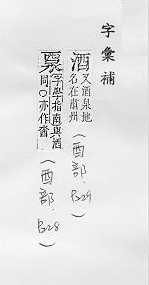 字彙補
酒
又酒泉地
名在肅州
(酉部
字學指南與酒
同○亦作
(酉部